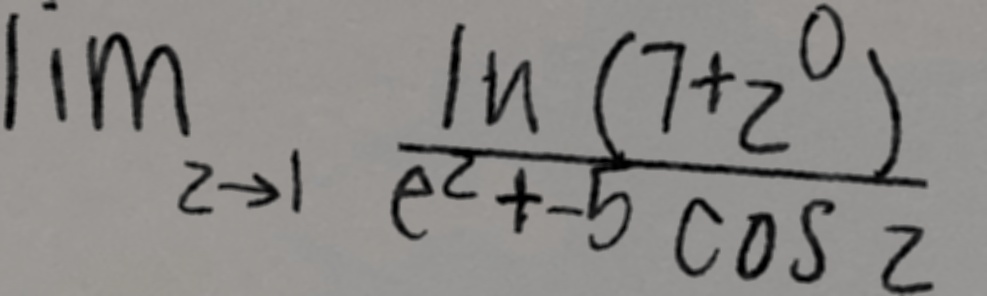 lim z→1 ln (7+z^0) / e^z + -5 cos z